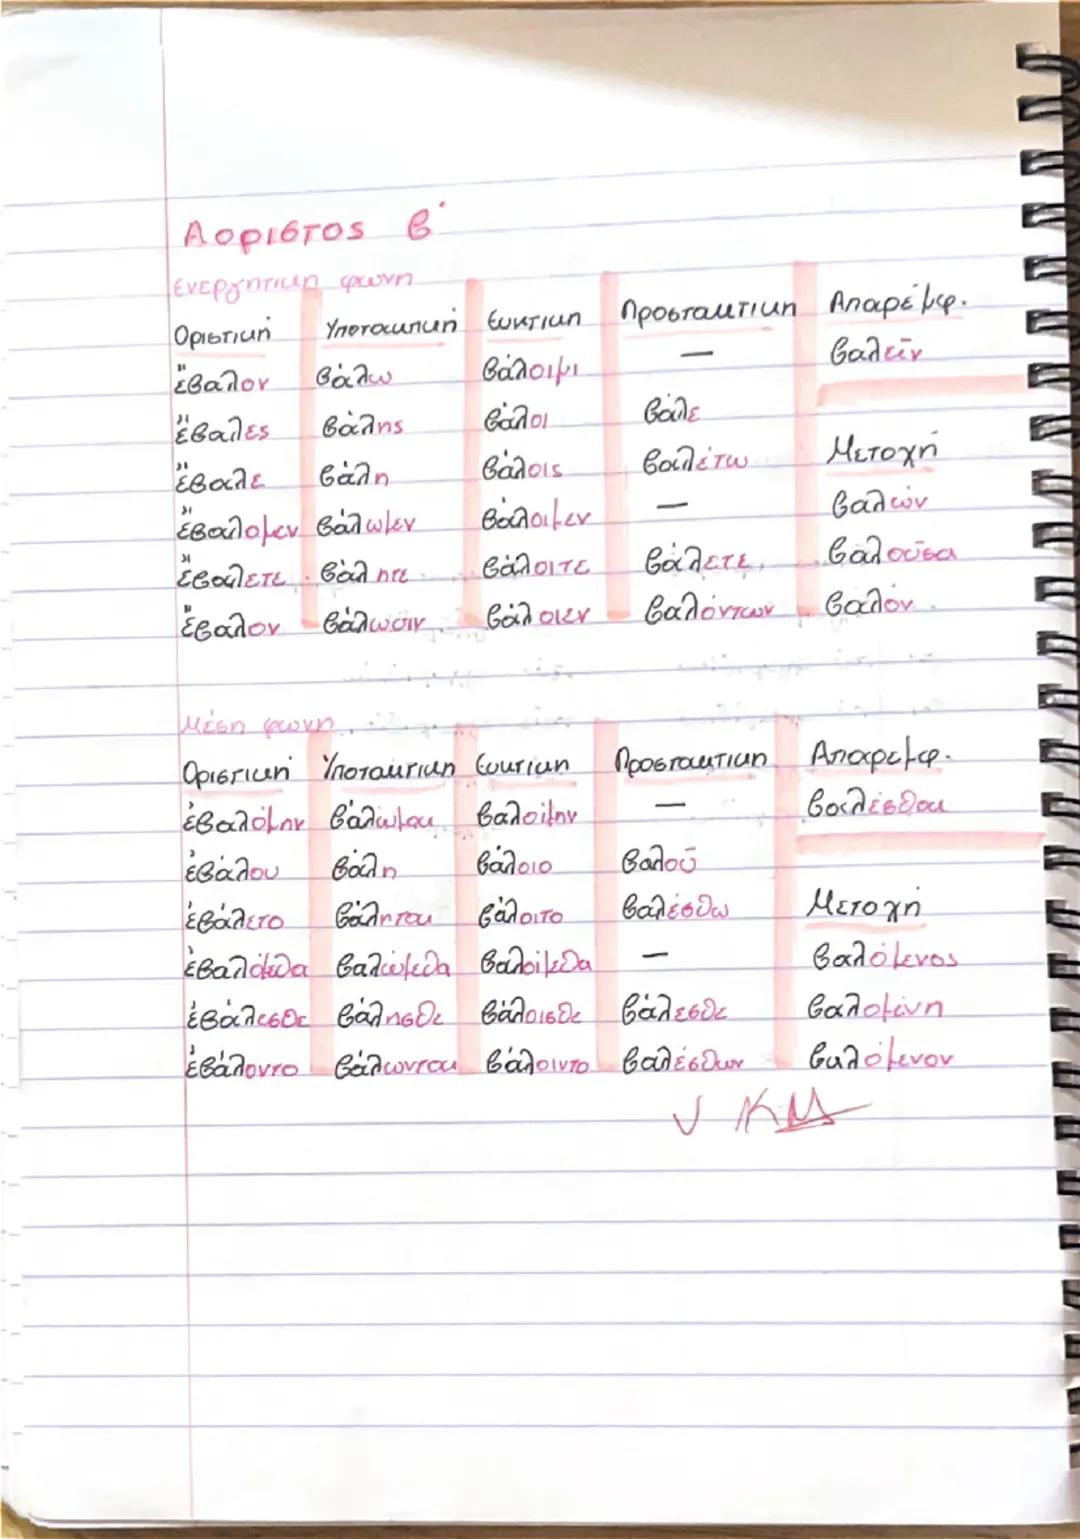 Αοριστος β'
Ενεργητικη φωνη
Οριστικη Υποτακτικη Ευκτικη Προστακτικη Απαρέμφ.
ἔβαλον βάλω βάλοιμι — βαλεῖν
ἔβαλες βάλης βάλοι βάλε
ἔβαλε βάλη βάλοις βαλέτω Μετοχή
ἔβαλομεν βάλωμεν βάλοιμεν — βαλών
ἔβαλετε βάλητε βάλοιτε βάλετε βαλοῦσα
ἔβαλον βάλωσιν βάλοιεν βαλόντων βαλόν
Μέση φωνη
Οριστικη Υποτακτικη Ευκτικη Προστακτικη Απαρεμφ.
ἐβαλόμην βάλωμαι βαλοίμην — βαλέσθαι
ἐβάλου βάλη βάλοιο βαλοῦ
ἐβάλετο βάληται βάλοιτο βαλέσθω Μετοχή
ἐβαλόμεθα βαλώμεθα βαλοίμεθα — βαλόμενος
ἐβάλεσθε βάλησθε βάλοισθε βάλεσθε βαλομένη
ἐβάλοντο βάλωνται βάλοιντο βαλέσθων βαλόμενον